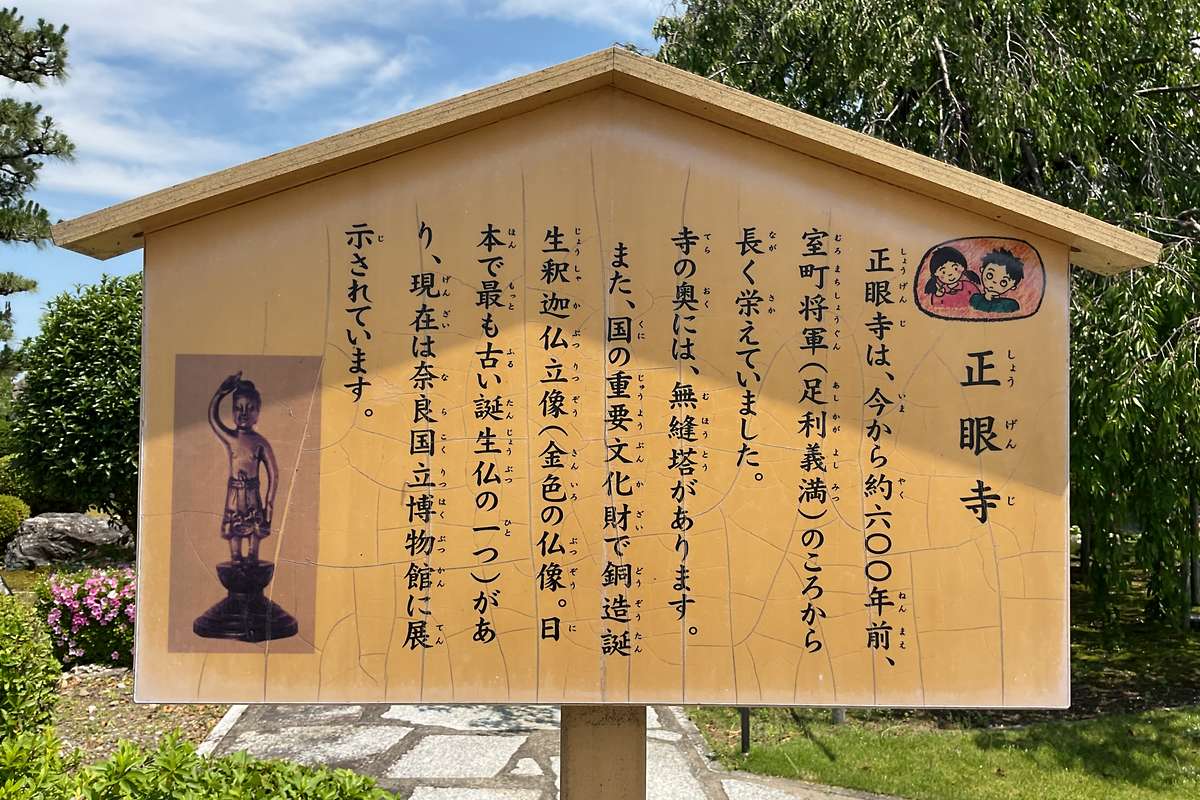 正眼寺
正眼寺は、今から約六〇〇年前、
室町将軍（足利義満）のころから
長く栄えていました。
寺の奥には、無縫塔があります。
また、国の重要文化財で銅造誕
生釈迦仏立像（金色の仏像。日
本で最も古い誕生仏の一つ）があ
り、現在は奈良国立博物館に展
示されています。